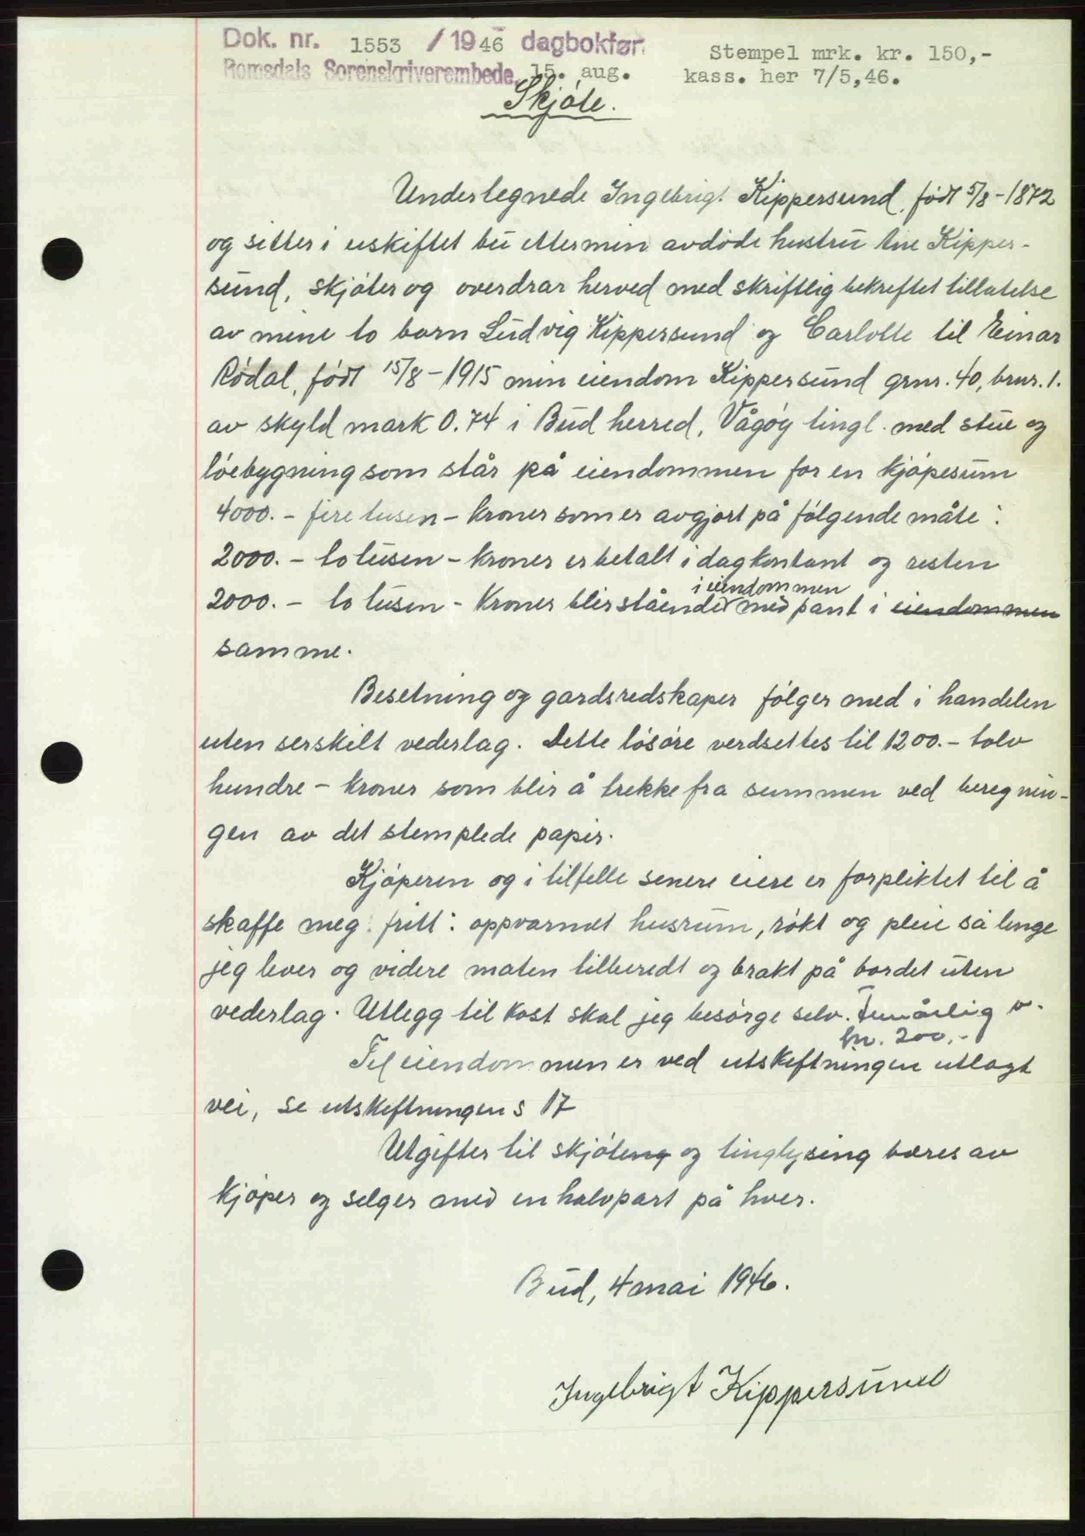 Dok. nr. 1553 / 1946 dagbokfør.
Stempel mrk. kr. 150,-
Romsdals Sorenskriverembede, 15. aug.
kass. her 7/5,46.
Skjøte.
Undertegnede Ingebrigt Kippersund, født 5/8-1872
og sitter i uskiftet bu etter min avdøde hustru Kipper-
sund, skjøter og overdrar herved med skriftlig bekreftet tillatelse
av mine to barn Ludvig Kippersund og Carlotte til Einar
Rödal, født 15/8-1915 min eiendom Kippersund grnr. 40, brnr. 1.
av skyld mark 0.74 i Bud herred, Vågøy tingl. med stue og
løebygning som står på eiendommen for en kjøpesum
4000.- fire tusen - kroner som er avgjort på følgende måte:
2000.- to tusen - kroner er betalt i dag kontant og resten
i eiendommen
2000.- to tusen - kroner blir stående med pant i eiendommen
samme.
Besetning og gardsredskaper følger med i handelen
uten serskilt vederlag. Dette løsøre verdsettes til 1200.- tolv
hundre - kroner som blir å trekke fra summen ved beregnin-
gen av det stemplede papir.
Kjøperen og i tilfelle senere eiere er forpliktet til å
skaffe meg: fritt: oppvarmet husrum, røkt og pleie så lenge
jeg lever og videre maten tilberedt og brakt på bordet uten
vederlag. Utlegg til kost skal jeg besørge selv. Femårlig v.
kr. 200,-
Til eiendommen er ved utskiftningen utlagt
vei, se utskiftningens 17
Utgifter til skjøteng og tinglysing bæres av
kjøper og selger med en halvpart på hver.
Bud, 4 mai 1946.
Ingebrigt Kippersund